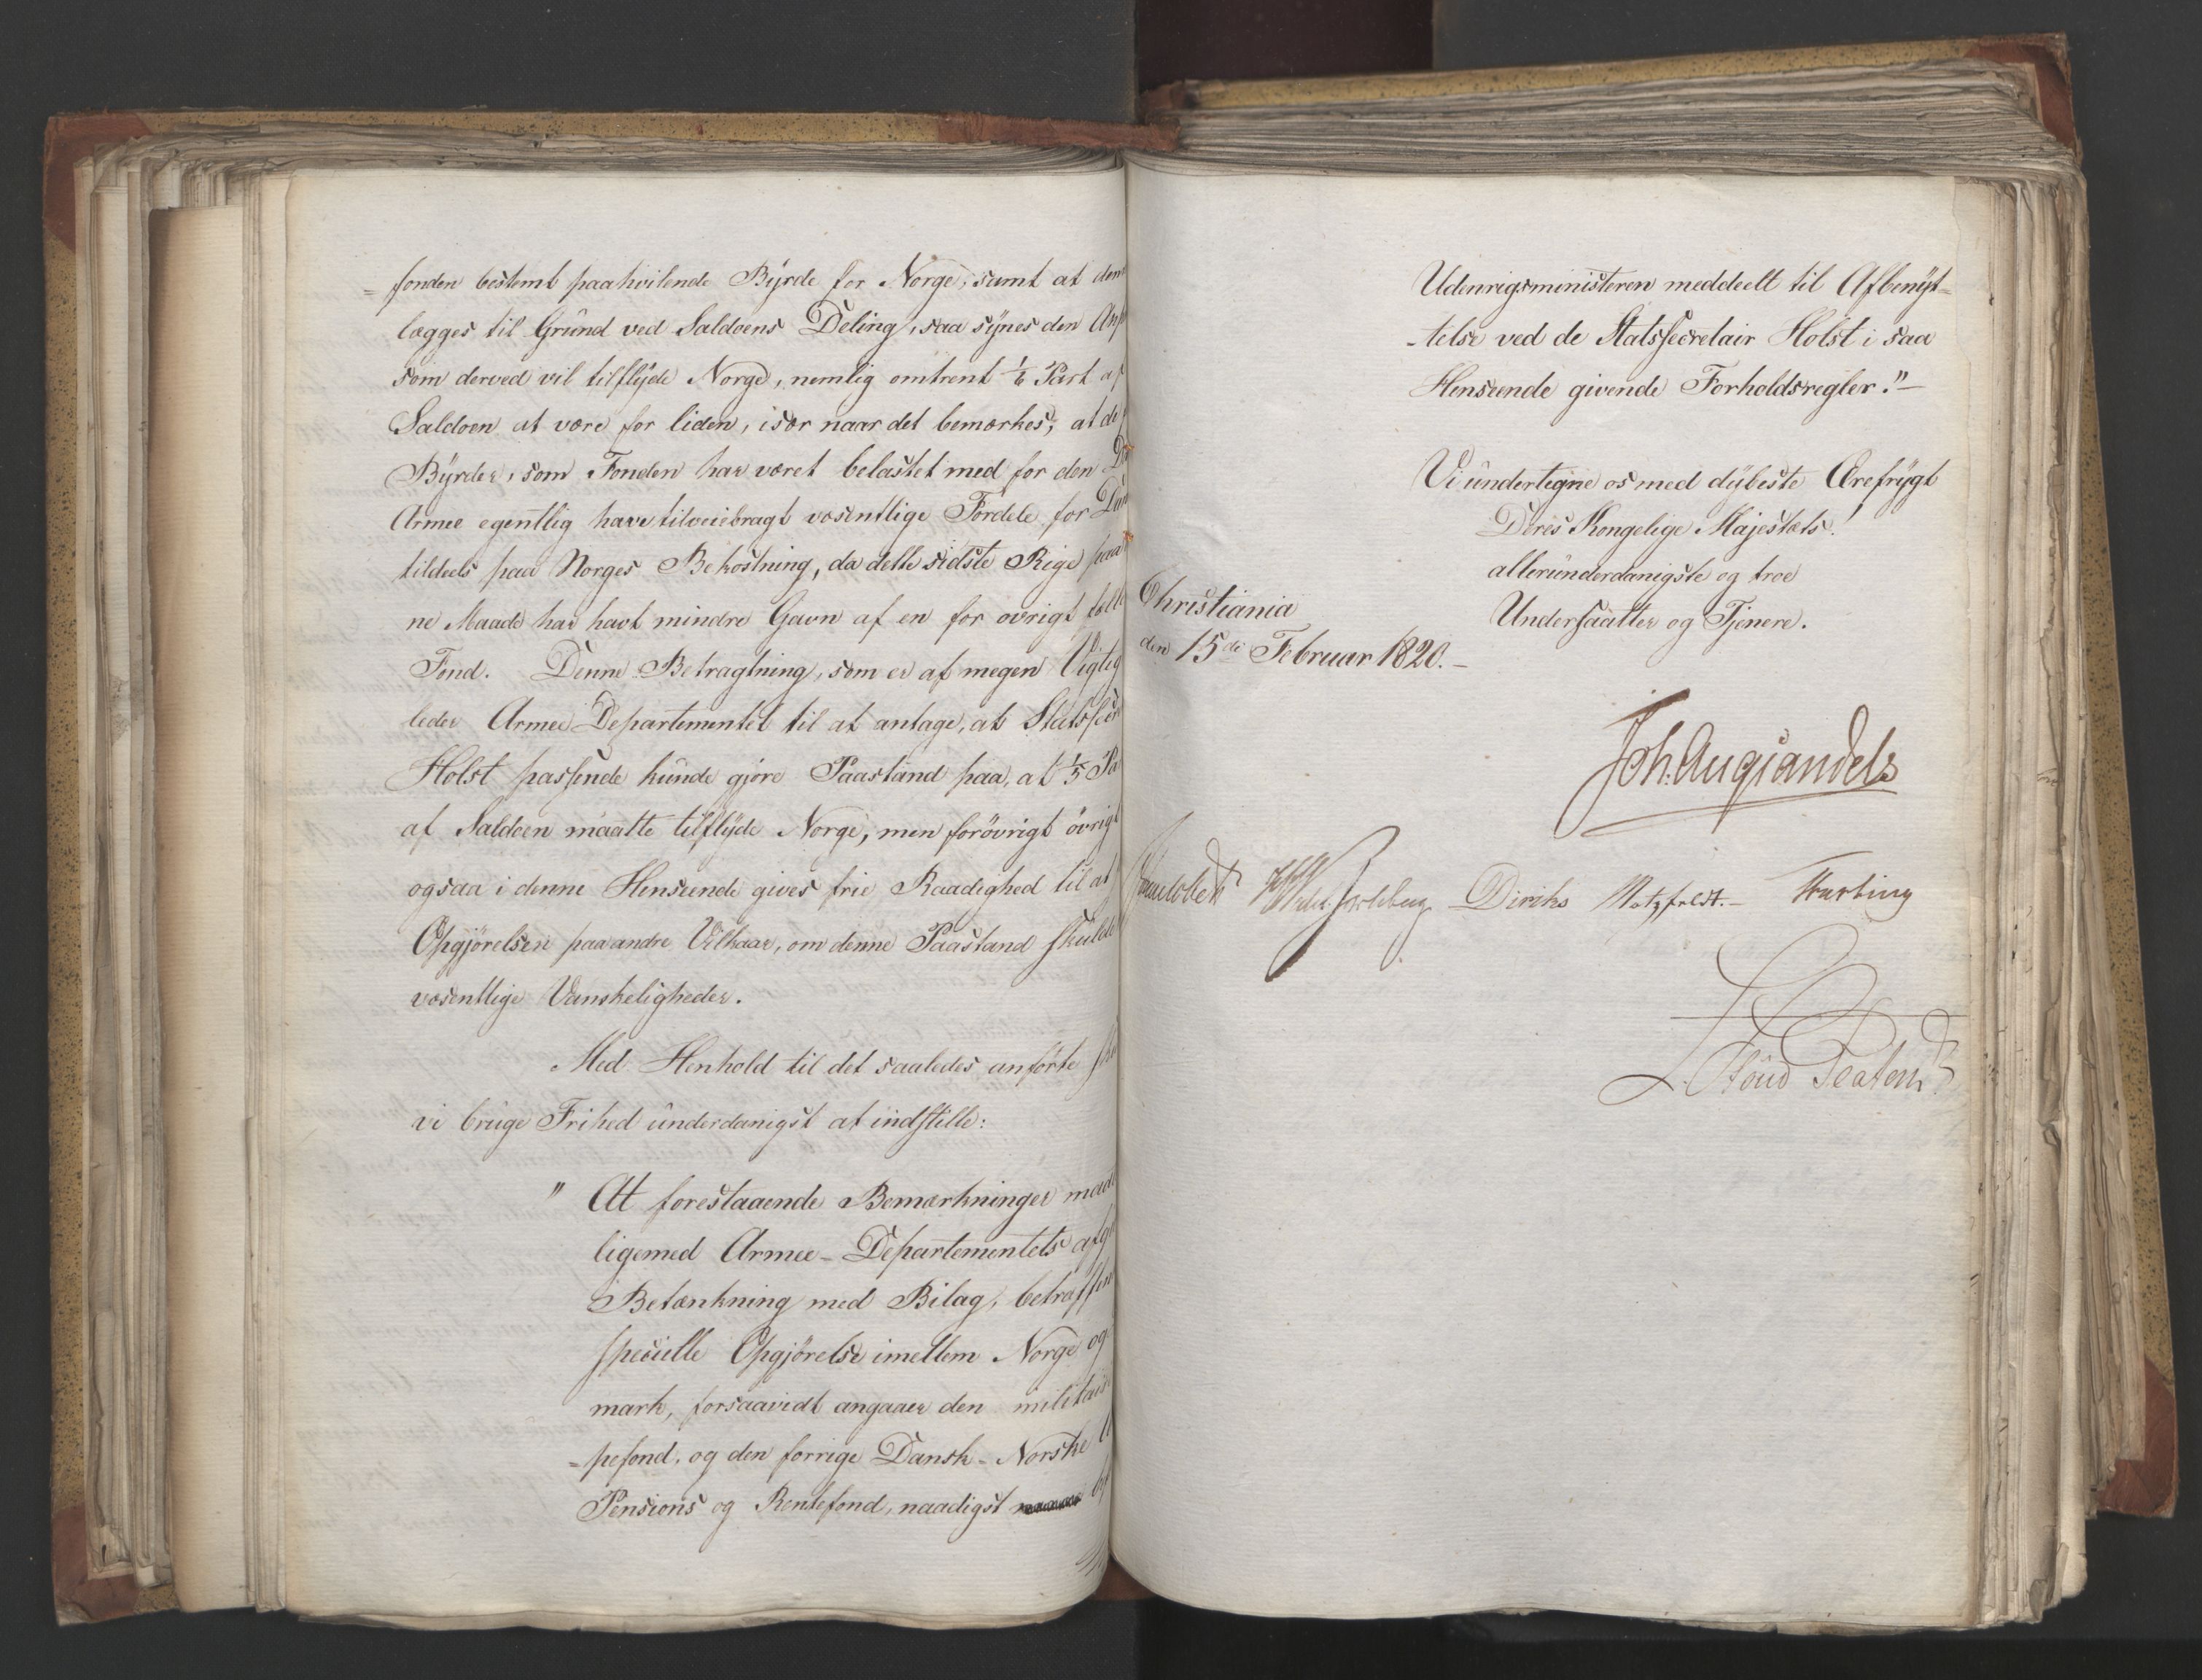 = fonden bestemt paahvilende Byrde for Norge, samt at den
lægges til Grund ved Saldoens Deling, saa synes den
som derved vil tilflyde Norge, nemlig omtrent 1/6 Part af
Saldoen at være for liden, især naar det bemærkes, at de
Byrder, som Fonden har været belastet med for den
Armee egentlig have tilveiebragt væsentlige Fordele for
tildeels paa Norges Bekostning, da dette sidste Rige paa
ne Maade har havt mindre Gavn af en for øvrigt
Fond. Denne Betragtning, som er af megen
leder Armee Departementet til at antage, at
Holst passende kunde gjøre Paastand paa, at 1/5
af Saldoen maatte tilflyde Norge, men forövrigt övrigt
ogsaa i denne Henseende gives frie Raadighed til at
Opgjørelsen paa andre Vilkaar, om denne Paastand skulde
væsentlige Vanskeligheder.
Med Henhold til det saaledes anførte
vi bruge Frihed underdanigst at indstille:
" At forestaaende Bemærkninger
ligemed Armee-Departementets
Betænkning med Bilag,
specielle Opgjørelse imellem Norge og
mark, forsaavidt angaaer den
= pefond, og den forrige Dansk-Norske
Pensions og Rentefond, naadigst
Udenrigsministeren meddeelt til Afbenyt=
-telse ved de Statssecretair Holst i saa
Henseende givende Forholdsregler."-
Vi undertegne os med dybeste Ærefrygt
Deres Kongelige Majestæts!
allerunderdanigste og troe
Undersaatter og Tjenere.
Christiania
den 15de Februar 1820.-
Joh: Aug: Sandels
Diriks Motzfeldt.-